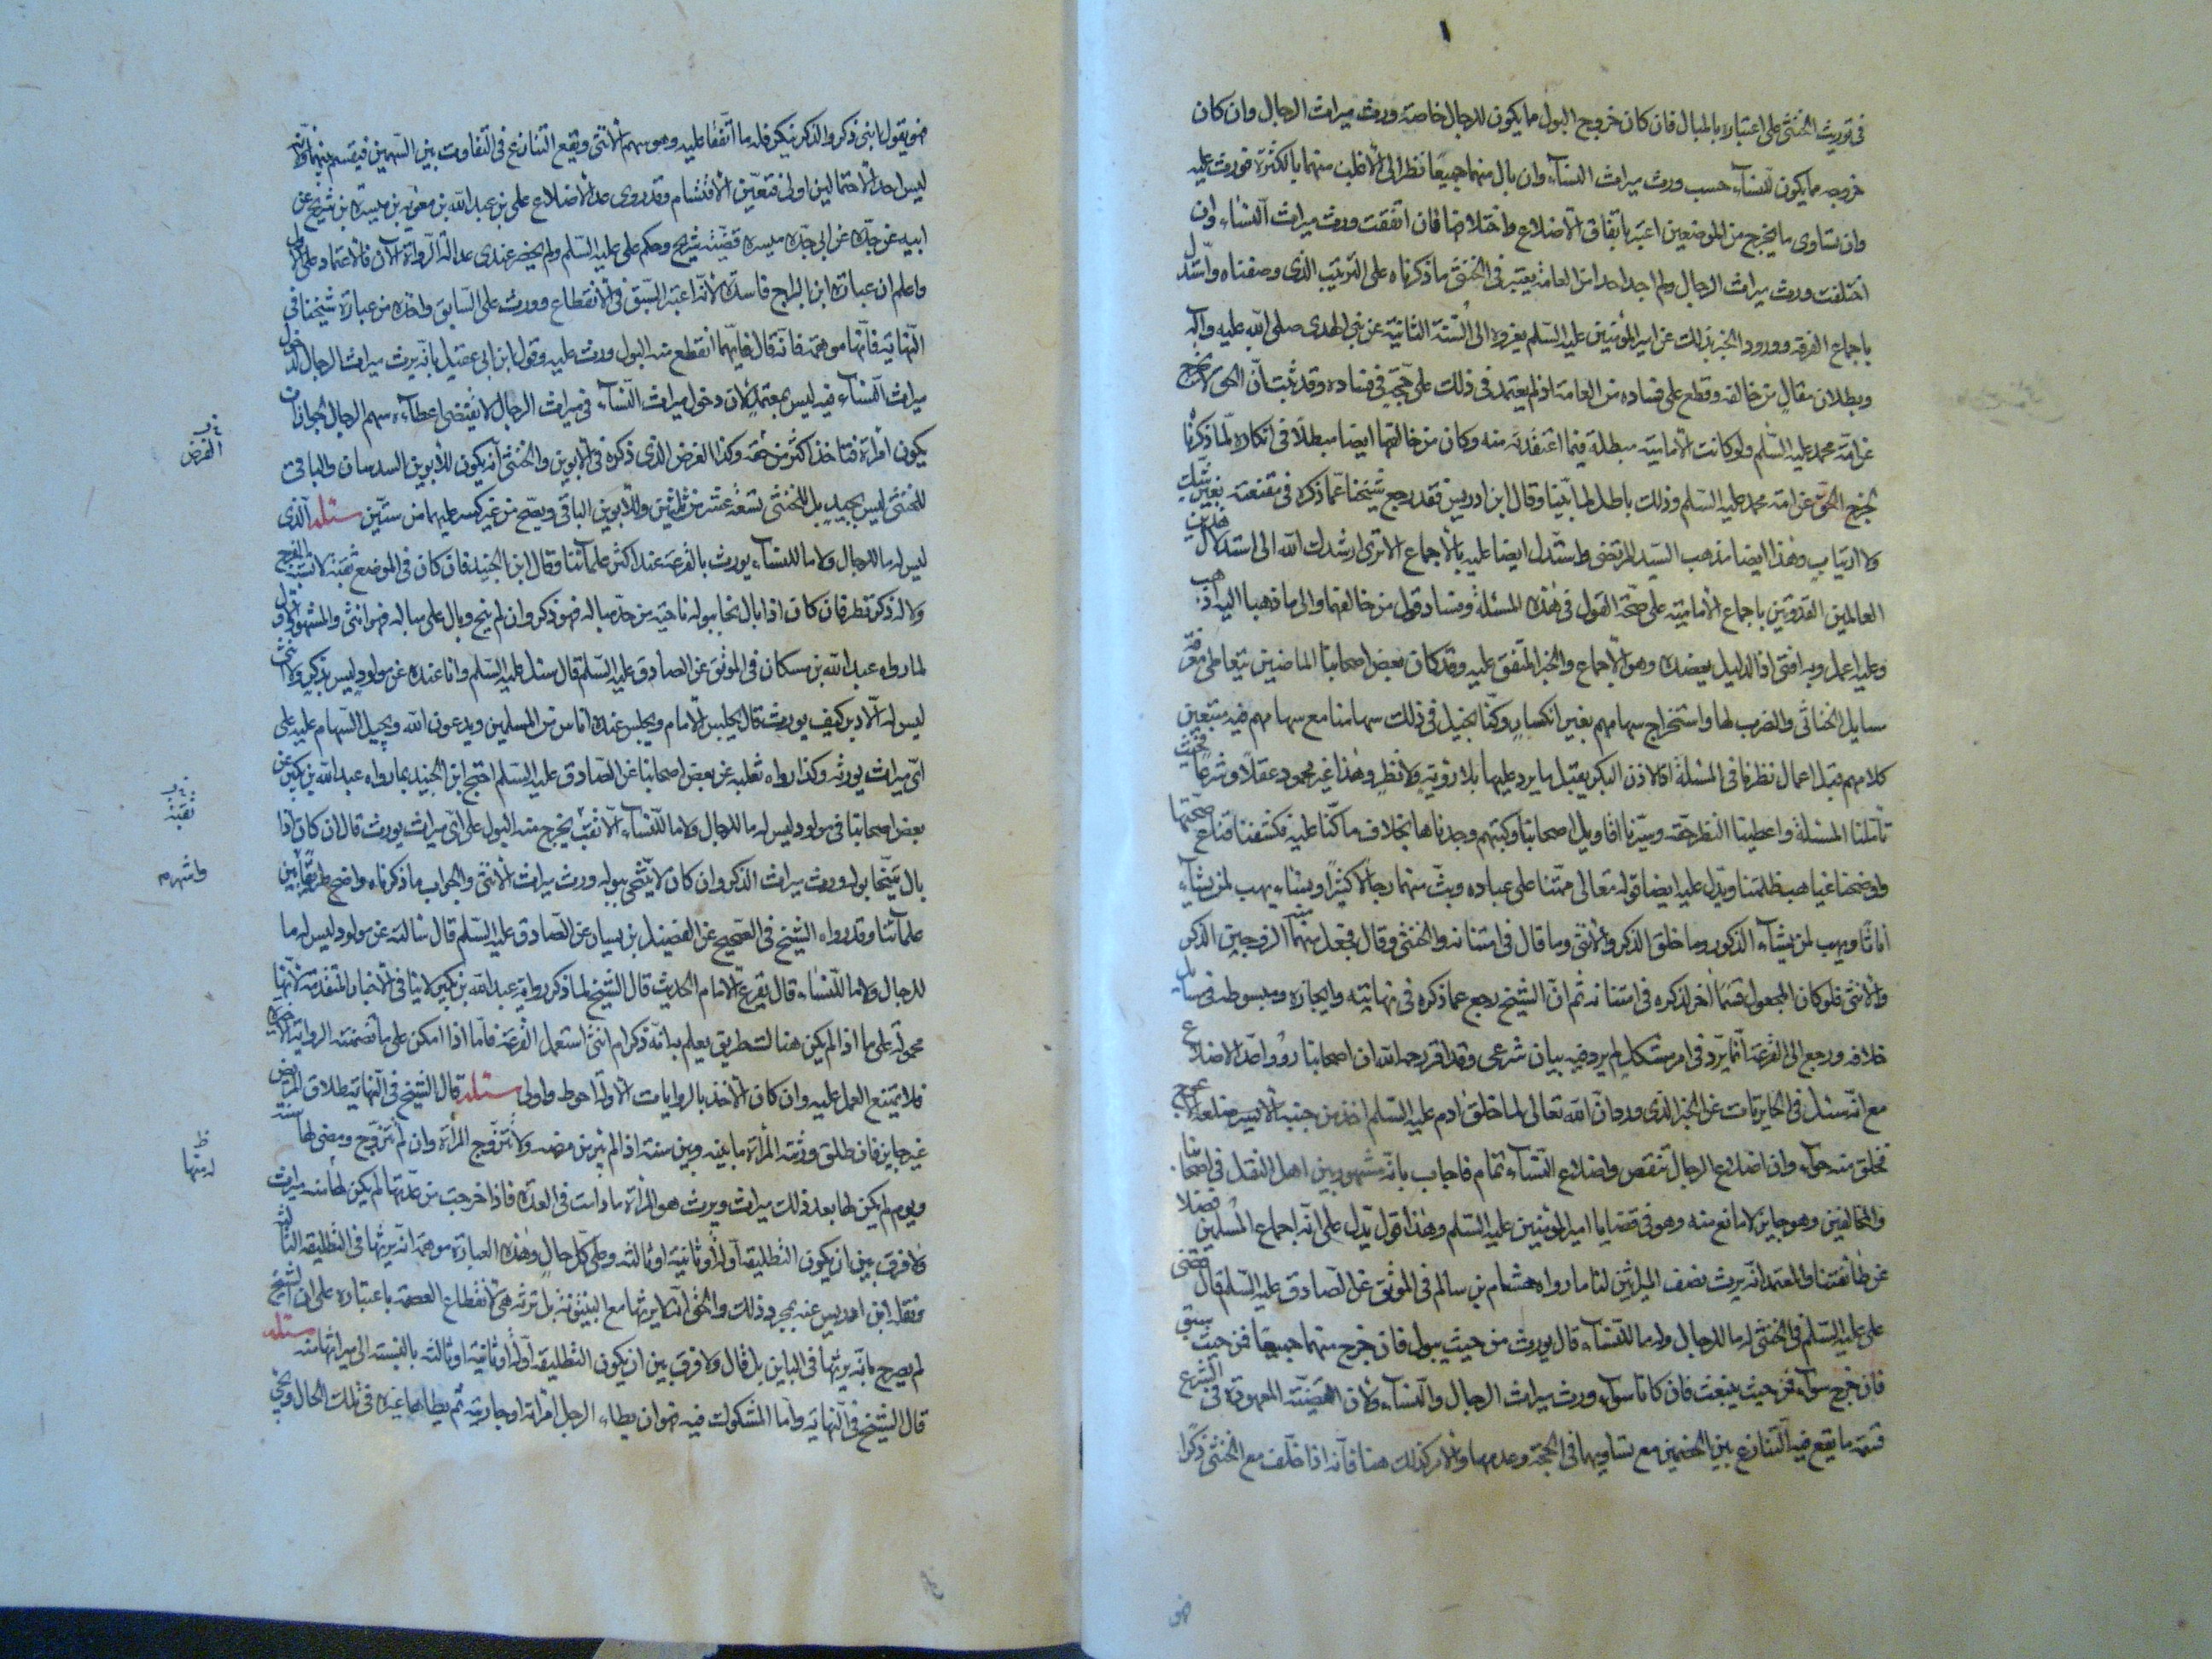 في توريث الخنثى على اعتباره بالمبال فان كان خروج البول مما يكون للرجال خاصة ورث ميراث الرجال وان كان
خروجه مما يكون للنساء حسب ورث ميراث النساء وان بال منهما جميعا نظر الى الاغلب منهما بالكثرة فورث عليه
وان تساوى ما يخرج من الموضعين اعتبر باتفاق الاضلاع واختلافها فان اتفقت ورث ميراث النساء وان
اختلفت ورث ميراث الرجال ولم اجد احدا من العامة يعتبر في الخنثى ما ذكرناه على الترتيب الذى وصفناه واستدل
باجماع الفرقة وورود الخبر بذلك عن امير المؤمنين عليه السلم يعزوه الى السنة الثابتة عن نبي الهدى صلى الله عليه وآله
وبطلان مقال من خالفه وقطع على فساده من العامة اذ لم يعتمد في ذلك على حجة في فساده وقد ثبت ان الحق لا يخرج
عن امة محمد عليه السلم ولو كانت الامامية مبطلة فيما اعتقدته منه وكان من خالفها ايضا مبطلا في انكاره لما ذكرنا
لخرج الحق عن امة محمد عليه السلم وذلك باطل لما بينا وقال ابن ادريس فقد رجع شيخنا عما ذكره في مقنعته بغير شك
ولا ارتياب وهذا ايضا مذهب السيد المرتضى واستدل ايضا عليه بالاجماع الا ترى ارشدك الله الى استدلال هذين
العالمين القدوتين باجماع الامامية على صحة القول في هذه المسئلة وفساد قول من خالفهما والى ما ذهبا اليه اذهب
وعليه اعمل وبه افتى اذ الدليل يعضده وهو الاجماع والخبر المتفق عليه وقد كان بعض اصحابنا الماضين يتعاطى معرفة
مسايل الخناثى والضرب لها واستخراج سهامهم بغير انكسار وكنا نخيل في ذلك سهامنا مع سهامهم فيه متبعين
كلامهم قبل اعمال نظرنا في المسئلة اقلا ذن البكر يقبل ما يرد عليها بلا روية ولا نظر وهذا غير محمود عقلا وشرعا فحيث
تاملنا المسئلة واعطينا النظر حقه وسبرنا اقاويل اصحابنا وكتبهم وجدناها بخلاف ما كنا عليه فكشفنا قناع صحتها
واوضحنا غياهب ظلمتنا ويدل عليه ايضا قوله تعالى ممتنا على عباده وبث منهما رجالا كثيرا ونساء يهب لمن يشآء
اناثا ويهب لمن يشآء الذكور وما خلق الذكر والانثى وما قال في امتنانه والخنثى وقال فجعل منهما الزوجين الذكر
والانثى فلو كان المجعول قسما آخر لذكره في امتنانه ثم ان الشيخ رجع عما ذكره في نهايته وايجازه ومبسوطه في مسايل
خلافه ورجع الى القرعة انما يرد في امر مشكل لم يرد فيه بيان شرعى وقد اقر رحمه الله ان اصحابنا رووا عد الاضلاع
مع انه سئل في الحايريات عن الخبر الذى ورد ان الله تعالى لما خلق ادم عليه السلم اخذ من جنبه الايسر ضلعه الاعوج
فخلق منه حوا وان اضلاع الرجال تنقص واضلاع النساء تمام فاجاب بانه مشهور بين اهل النقل في اصحابنا
والمخالفين وهو جايز لا مانع منه وهو في قضايا امير المؤمنين عليه السلم وهذا قول يدل على انه اجماع المسلمين فضلا
عن طائفتنا والمعتمد انه يرث نصف الميراثين لنا ما رواه هشام بن سالم في الموثق عن الصادق عليه السلم قال قضى
على عليه السلم في الخنثى له ما للرجال وله ما للنساء قال يورث من حيث يبول فان خرج منهما جميعا فمن حيث سبق
فان خرج سوآء فمن حيث ينبعث فان كانا سوآء ورث ميراث الرجال والنساء ولان القضية المعهودة في الشرع
قسمة ما يقع فيه التنازع بين الخصمين مع تساويهما في الحجة وعدمها والامر كذلك هنا فانه اذا خلف مع الخنثى ذكرا
فهو يقول انني ذكر والذكر ينكر فله ما اتفقا عليه وهو سهم الانثى ويقع التنازع في التفاوت بين السهمين فيقسم بينهما ولانه
ليس احد الاحتمالين اولى فتعين الاقتسام وقد روى عد الاضلاع على بن عبد الله بن معوية بن ميسرة بن شريح عن
ابيه عن جده عن ابى جده ميسرة قضية شريح وحكم على عليه السلم ولم يحضر عندى عدالة الرواة الآن فالاعتماد على الاول
واعلم ان عبارة ابن البراج فاسدة لانه اعتبر السبق في الانقطاع وورث على السابق واخذه من عبارة شيخنا في
النهاية فانها موهمة فانه قال فايهما انقطع منه البول ورث عليه وقول ابن ابى عقيل بانه يرث ميراث الرجال لدخول
ميراث النساء فيه ليس بمعتمد لان دخول ميراث النساء في ميراث الرجال لا يقتضى اعطآءه سهم الرجال لجواز ان
يكون امرأة فتاخذ اكثر من حقه وكذا الفرض الذى ذكره في الابوين والخنثى انه يكون للابوين السدسان والباقى
للخنثى ليس بجيد بل للخنثى تسعة عشر من ثلثين وللابوين الباقى ويصح من غير كسر عليهما من ستين مسئلة الذى
ليس له ما للرجال ولا ما للنساء يورث بالقرعة عند اكثر علمآئنا وقال ابن الجنيد فان كان في الموضع ثقبة لا تشبه الفرج
ولا له ذكر نظر فان كان اذا بال نحا ببوله ناحية من حذ مباله فهو ذكر وان لم ينح وبال على مباله فهو انثى والمشهور الاول
لما رواه عبد الله بن مسكان في الموثق عن الصادق عليه السلم قال سئل عليه السلم وانا عنده عن مولود ليس بذكر ولا انثى
ليس له الا دبر كيف يورث قال يجلس الامام ويجلس عنده اناس من المسلمين ويدعون الله ويجيل السهام عليه على
اى ميراث يورثه وكذا رواه ثعلبه عن بعض اصحابنا عن الصادق عليه السلم احتج ابن الجنيد بما رواه عبد الله بن بكير عن
بعض اصحابنا في مولود ليس له ما للرجال ولا ما للنساء الا ثقب يخرج منه البول على اى ميراث يورث قال ان كان اذا
بال يتنحا بوله ورث ميراث الذكر وان كان لا يتنحى ببوله ورث ميراث الانثى والجواب ما ذكرناه واضح طريقا بين
علمآئنا وقد رواه الشيخ في الصحيح عن الفضيل بن يسار عن الصادق عليه السلم قال سالته عن مولود ليس له ما
للرجال ولا ما للنساء قال يقرع الامام الحديث قال الشيخ لما ذكر رواية عبد الله بن بكير لا ينافى الاخبار المتقدمة لانها
محمولة على ما اذا لم يكن هناك طريق يعلم به انه ذكر ام انثى استعمل القرعة فاما اذا امكن على ما تضمنته الرواية الاخيرة
فلا يمتنع العمل عليه وان كان الاخذ بالروايات الاولة احوط واولى مسئلة قال الشيخ في النهاية طلاق المريض
غير جايز فان طلق ورثته المرأة ما بينه وبين سنة اذا لم يبر من مرضه ولا تتزوج المرأة وان لم تتزوج ومضى لها سنة
ويوم لم يكن لها بعد ذلك ميراث ويرث هو المرأة ما دامت في العدة فاذا خرجت من عدتها لم يكن لها منه ميراث
ولا فرق بين ان يكون التطليقة اولة او ثانية او ثالثة وعلى كل حال وهذه العبارة موهمة انه يرثها في التطليقة الثالثة
ونقل ابن ادريس عنه بمجرد ذلك والحق انه لا يرثها مع البينونة بل ترثه هى لانقطاع العصمة باعتباره على ان الشيخ
لم يصرح بانه يرثها في الباين بل قال ولا فرق بين ان يكون التطليقة اولة او ثانية او ثالثة بالنسبة الى ميراثها منه مسئلة
قال الشيخ في النهاية واما المشكوك فيه فهو ان يطاء الرجل امرأته او جاريته ثم يطاءها غيره في تلك الحال ويجئ
الفرض
ثقبة
واشهر م
ظ
له منها